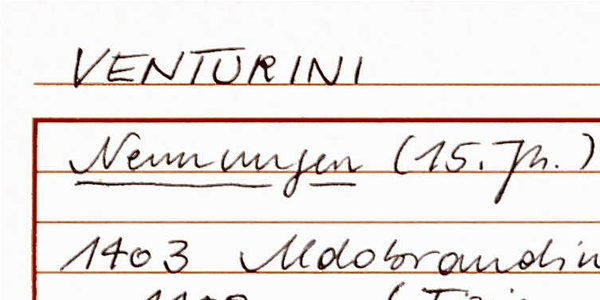 VENTURINI
Nennungen (15. Jh.)
1403 Aldobrandin